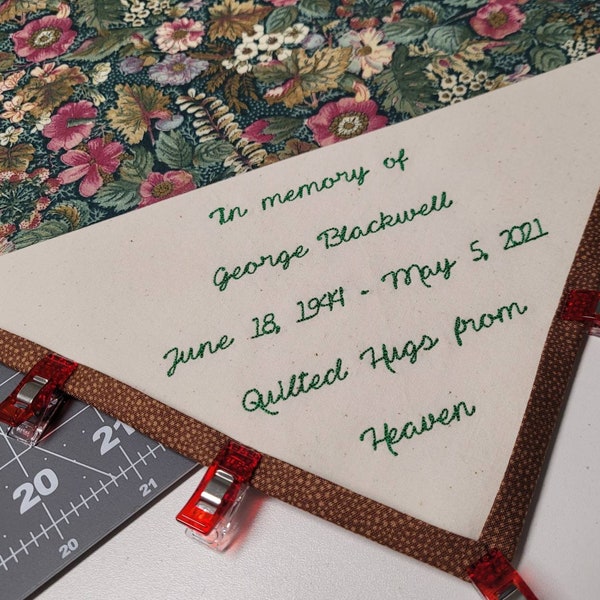 In memory of
George Blackwell
June 18, 1944 - May 5, 2021
Quilted Hugs from
Heaven
20
21
20
21